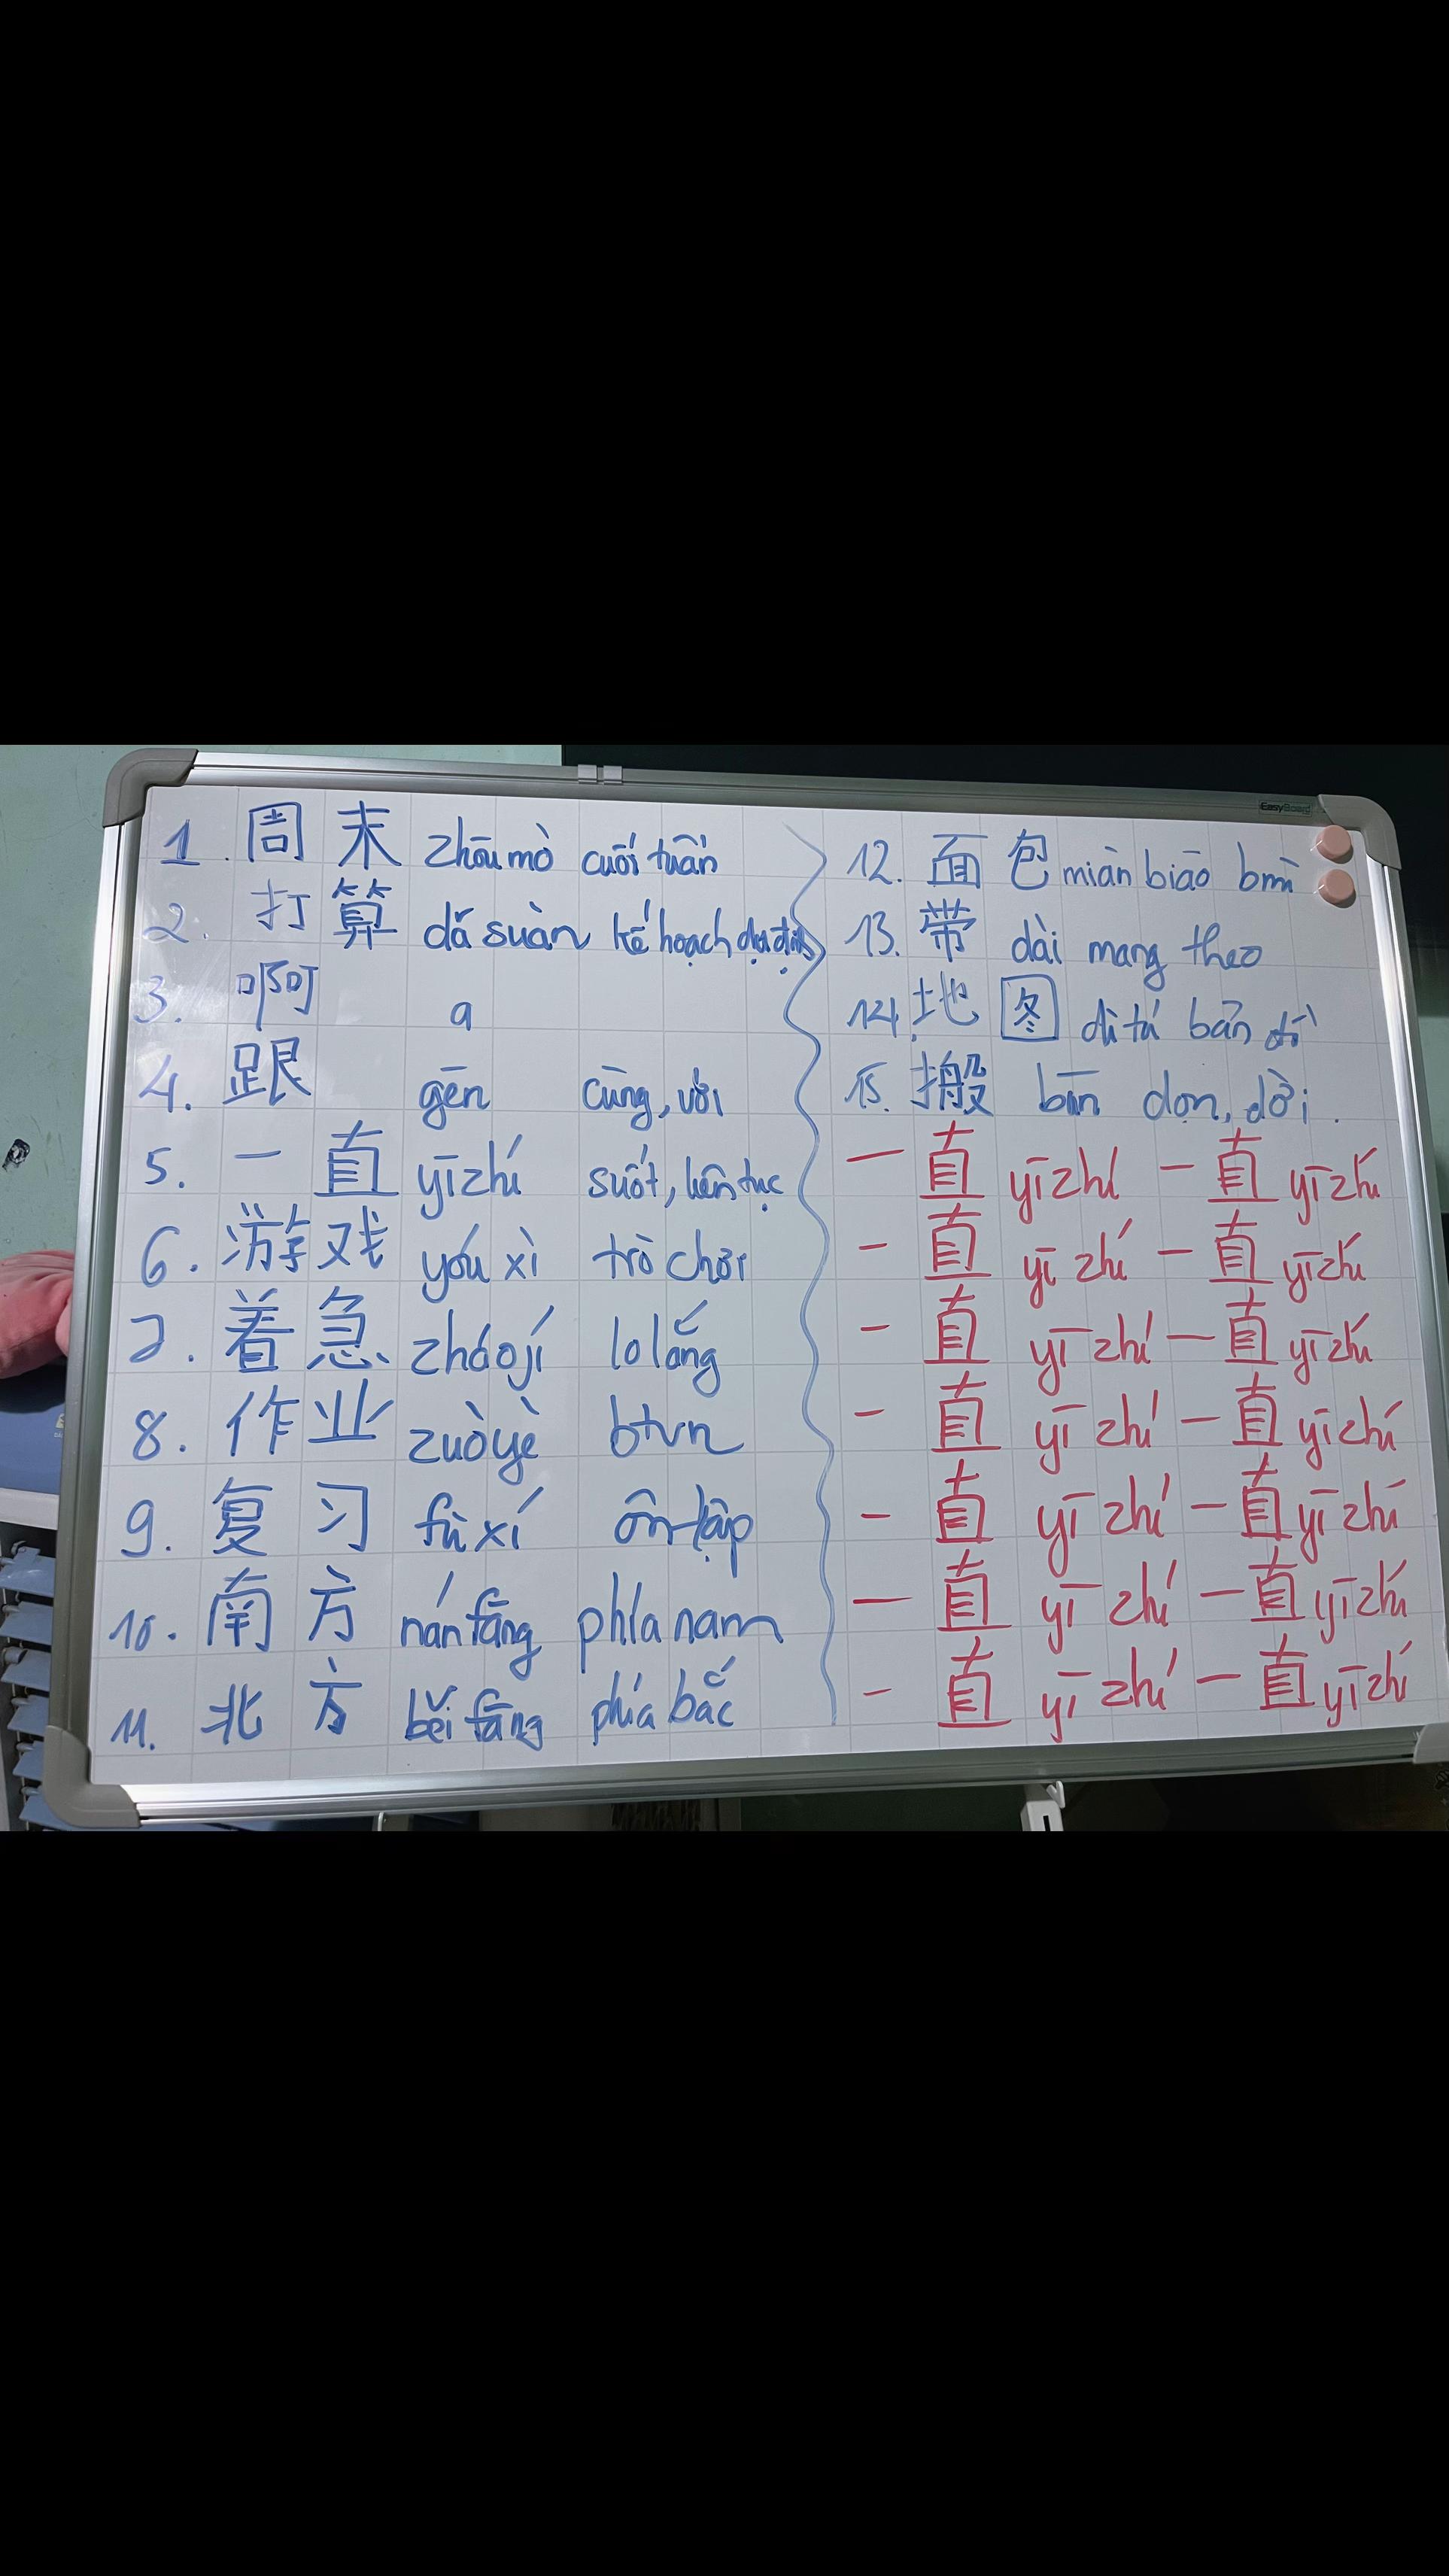 1. 周末 zhōumò cuối tuần
2. 打算 dǎsuàn kế hoạch dự định
3. 啊 a
4. 跟 gēn cùng, với
5. 一直 yīzhí suốt, liên tục
6. 游戏 yóuxì trò chơi
7. 着急 zháojí lo lắng
8. 作业 zuòyè btvn
9. 复习 fùxí ôn tập
10. 南方 nánfāng phía nam
11. 北方 běifāng phía bắc
EasyBoard
12. 面包 miànbiāo bmì
13. 带 dài mang theo
14. 地图 dìtú bản đồ
15. 搬 bān dọn, dời.
一直 yīzhí 一直 yīzhí
一直 yīzhí 一直 yīzhí
一直 yīzhí 一直 yīzhí
一直 yīzhí 一直 yīzhí
一直 yīzhí 一直 yīzhí
一直 yīzhí 一直 yīzhí
一直 yīzhí 一直 yīzhí